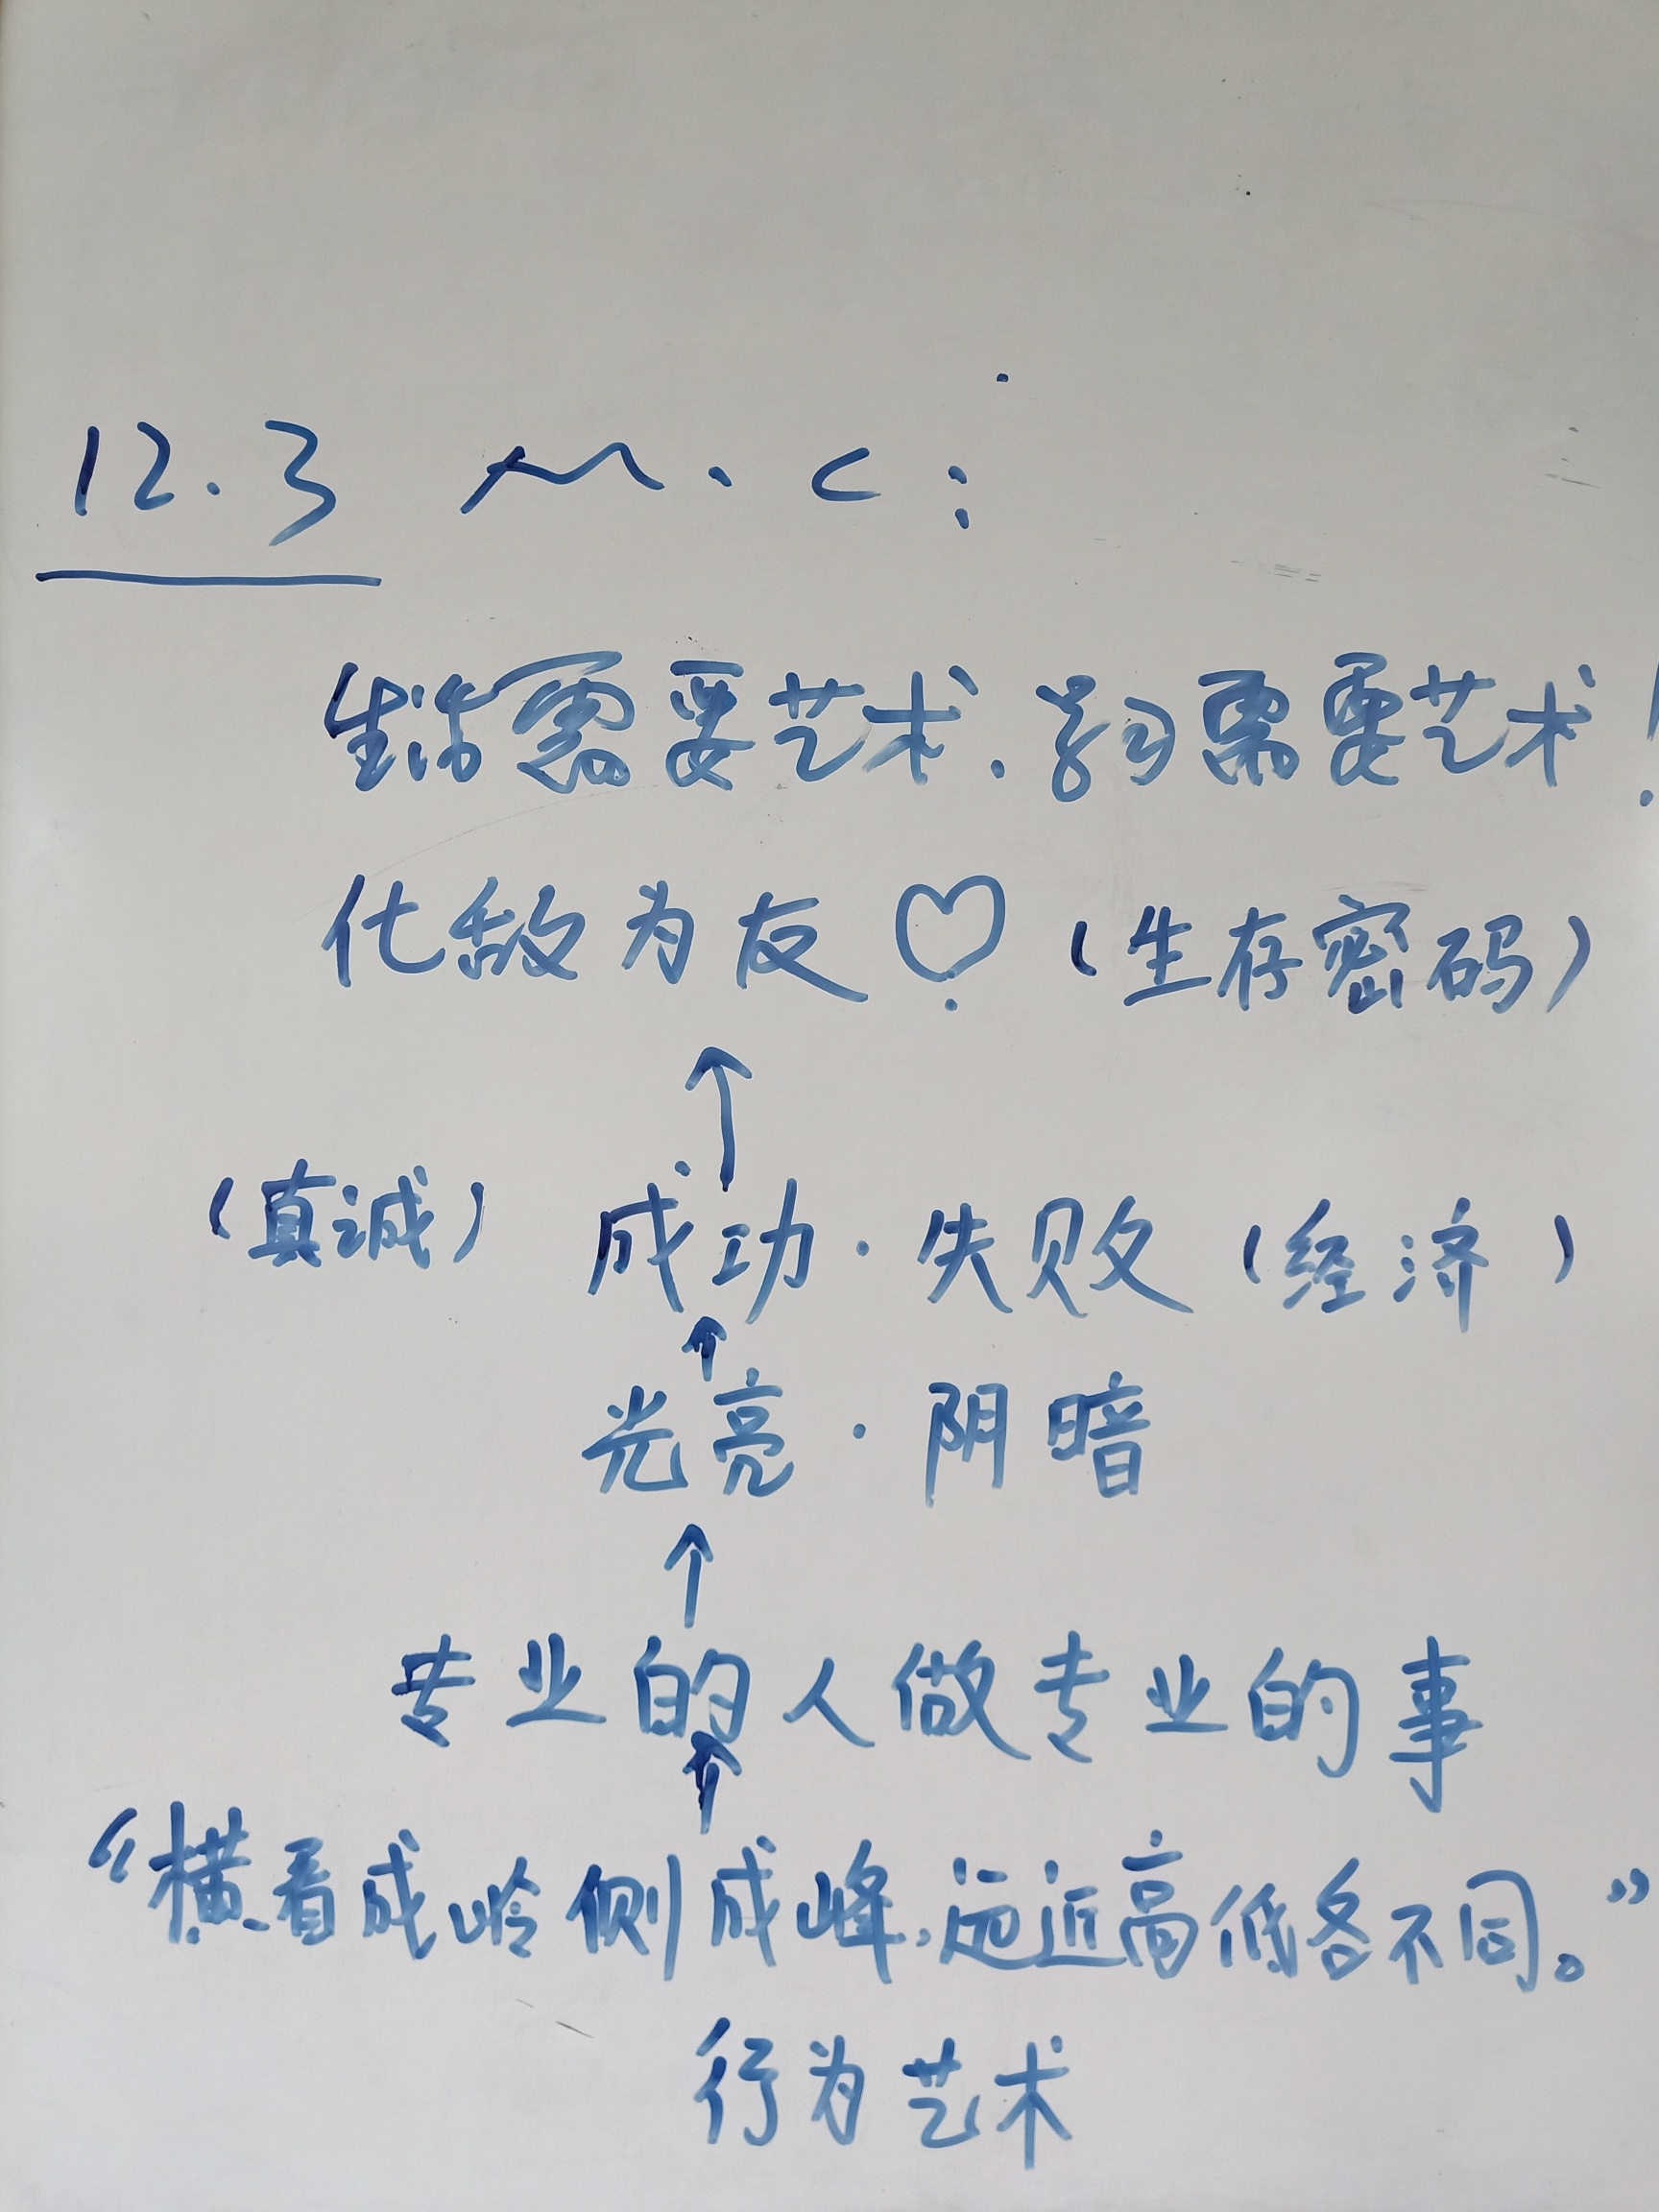 12.3 M.C:
生活需要艺术.学习需要艺术!
化敌为友♡(生存密码)
↑
(真诚) 成功·失败 (经济)
↑
光亮·阴暗
↑
专业的人做专业的事
↑
“横看成岭侧成峰,远近高低各不同。”
行为艺术